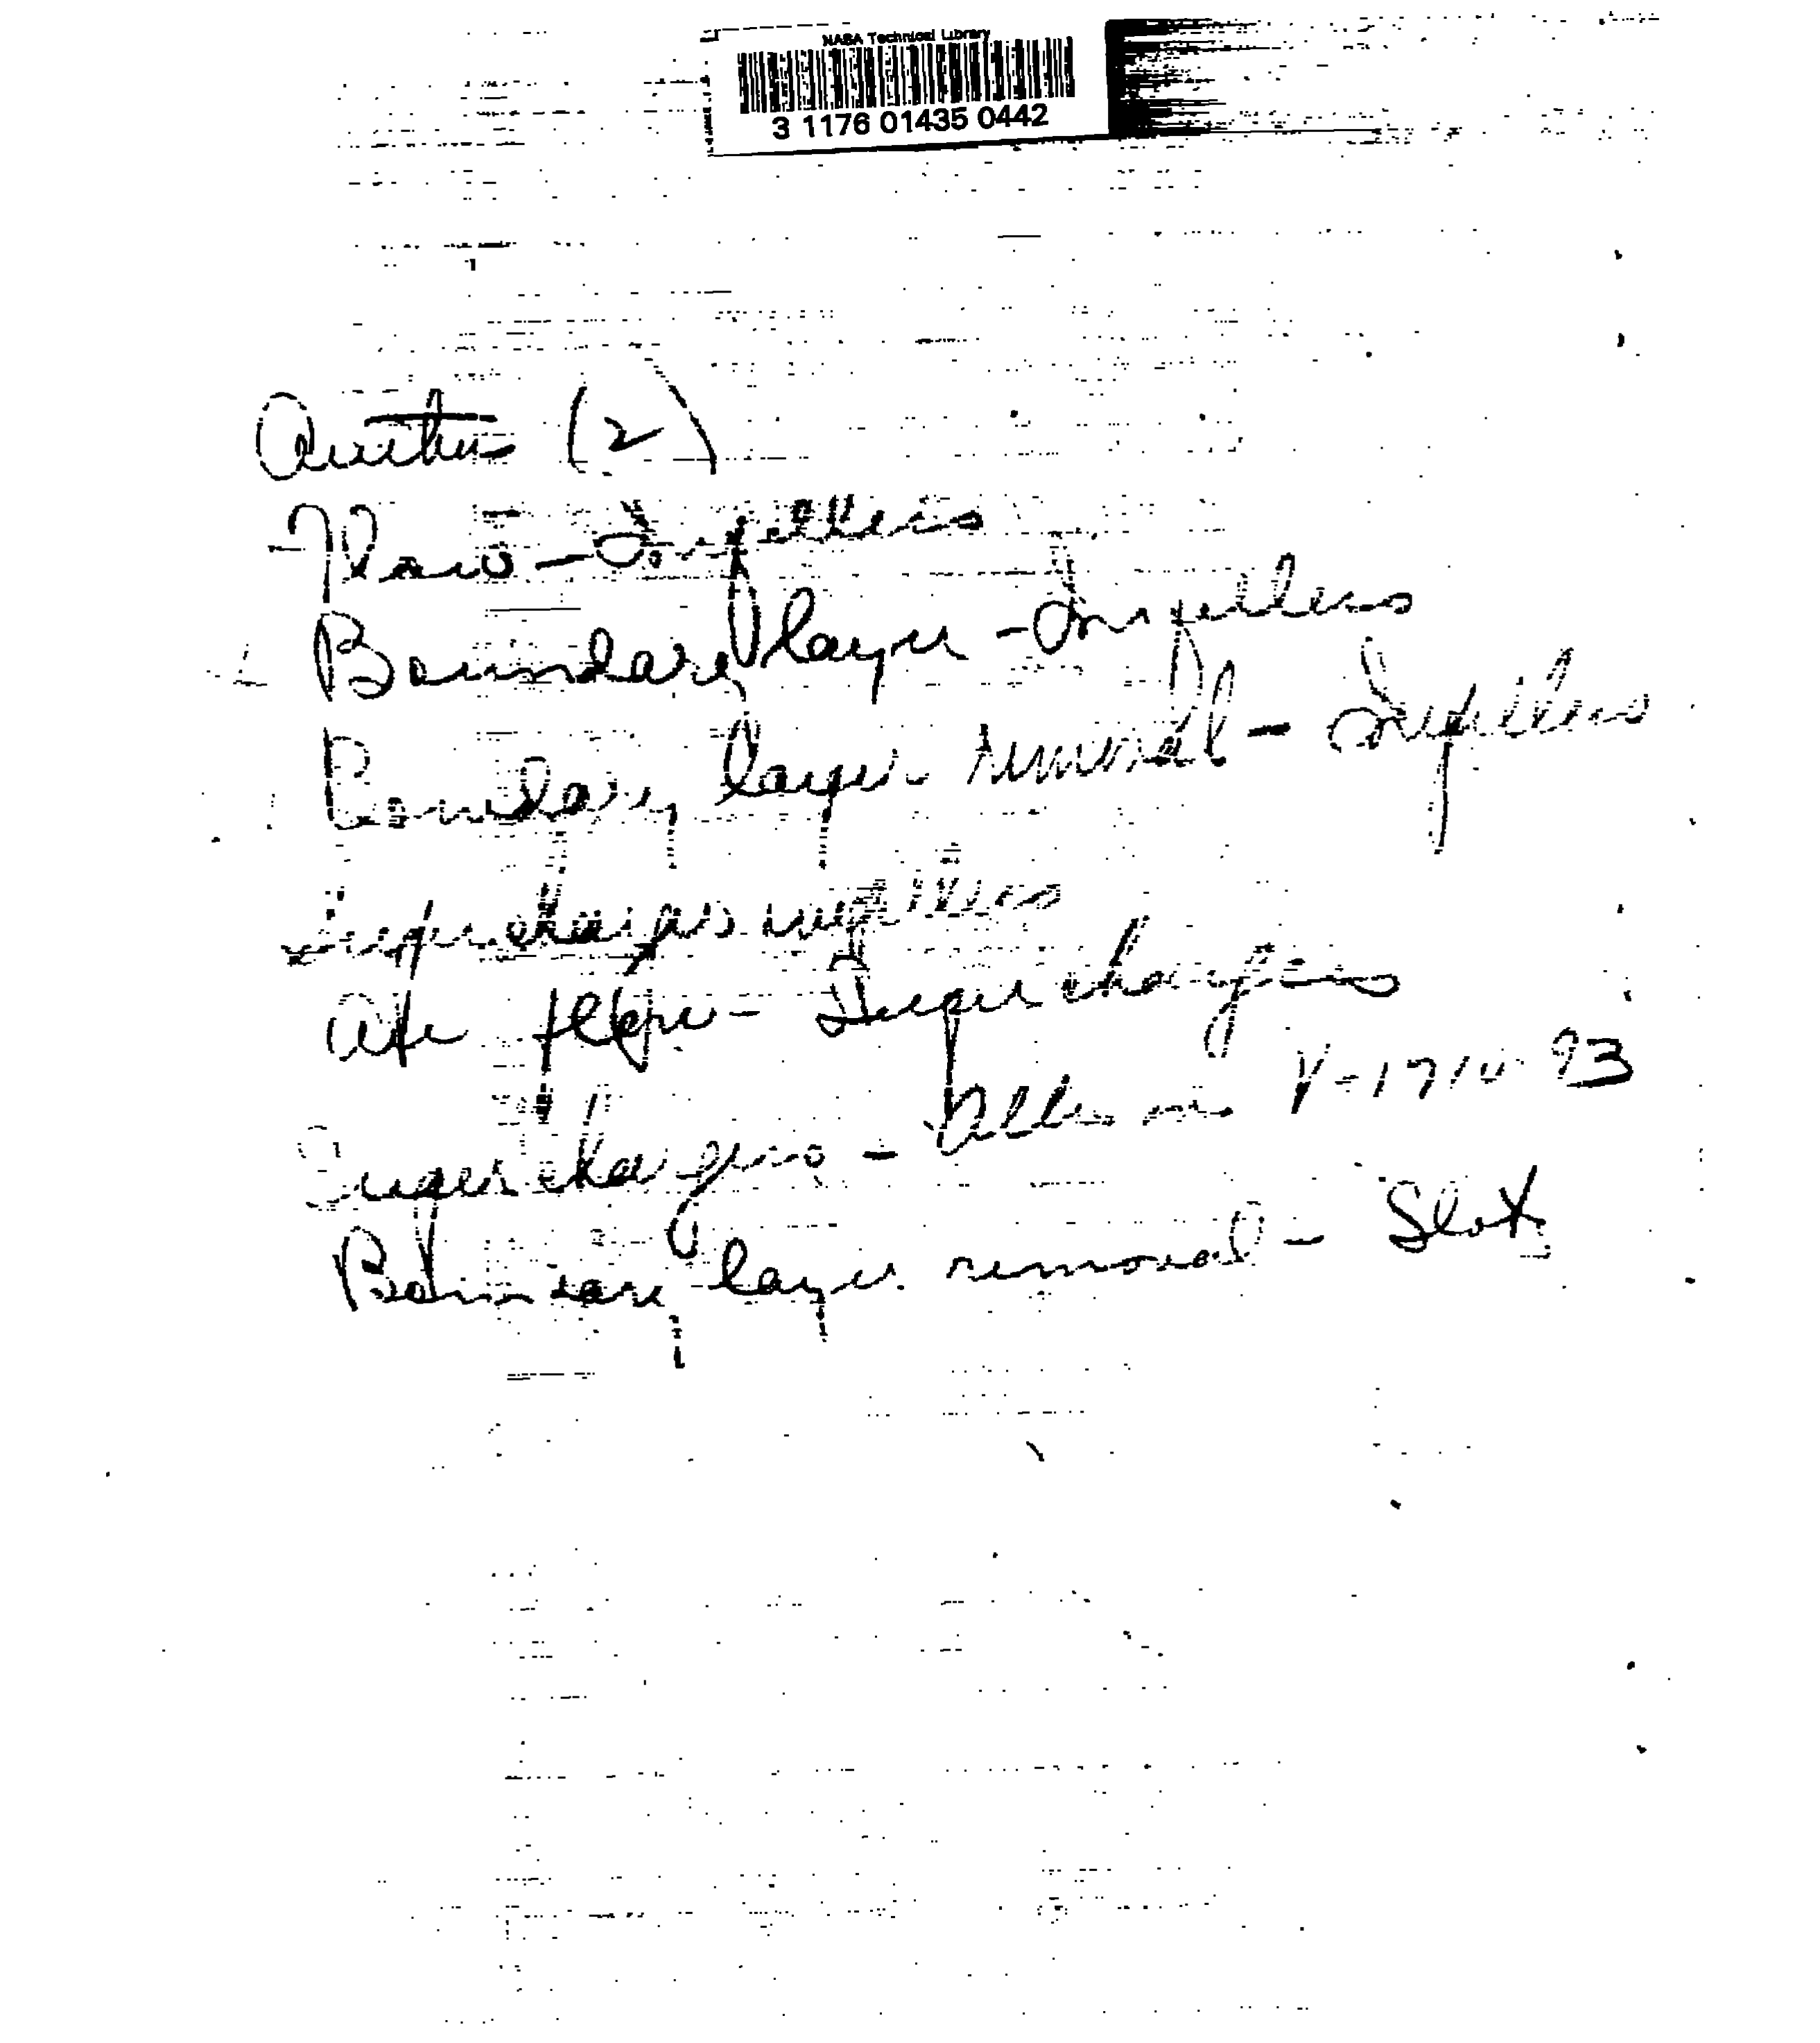 NASA Technical Library
3 1176 01435 0442
Author (2)
Flow - Impellers
Boundary layer - Impellers
Boundary layer removal - Impellers
Superchargers impellers
Air flow - Superchargers
Superchargers - Allison V-1710-93
Boundary layer removal - Slots